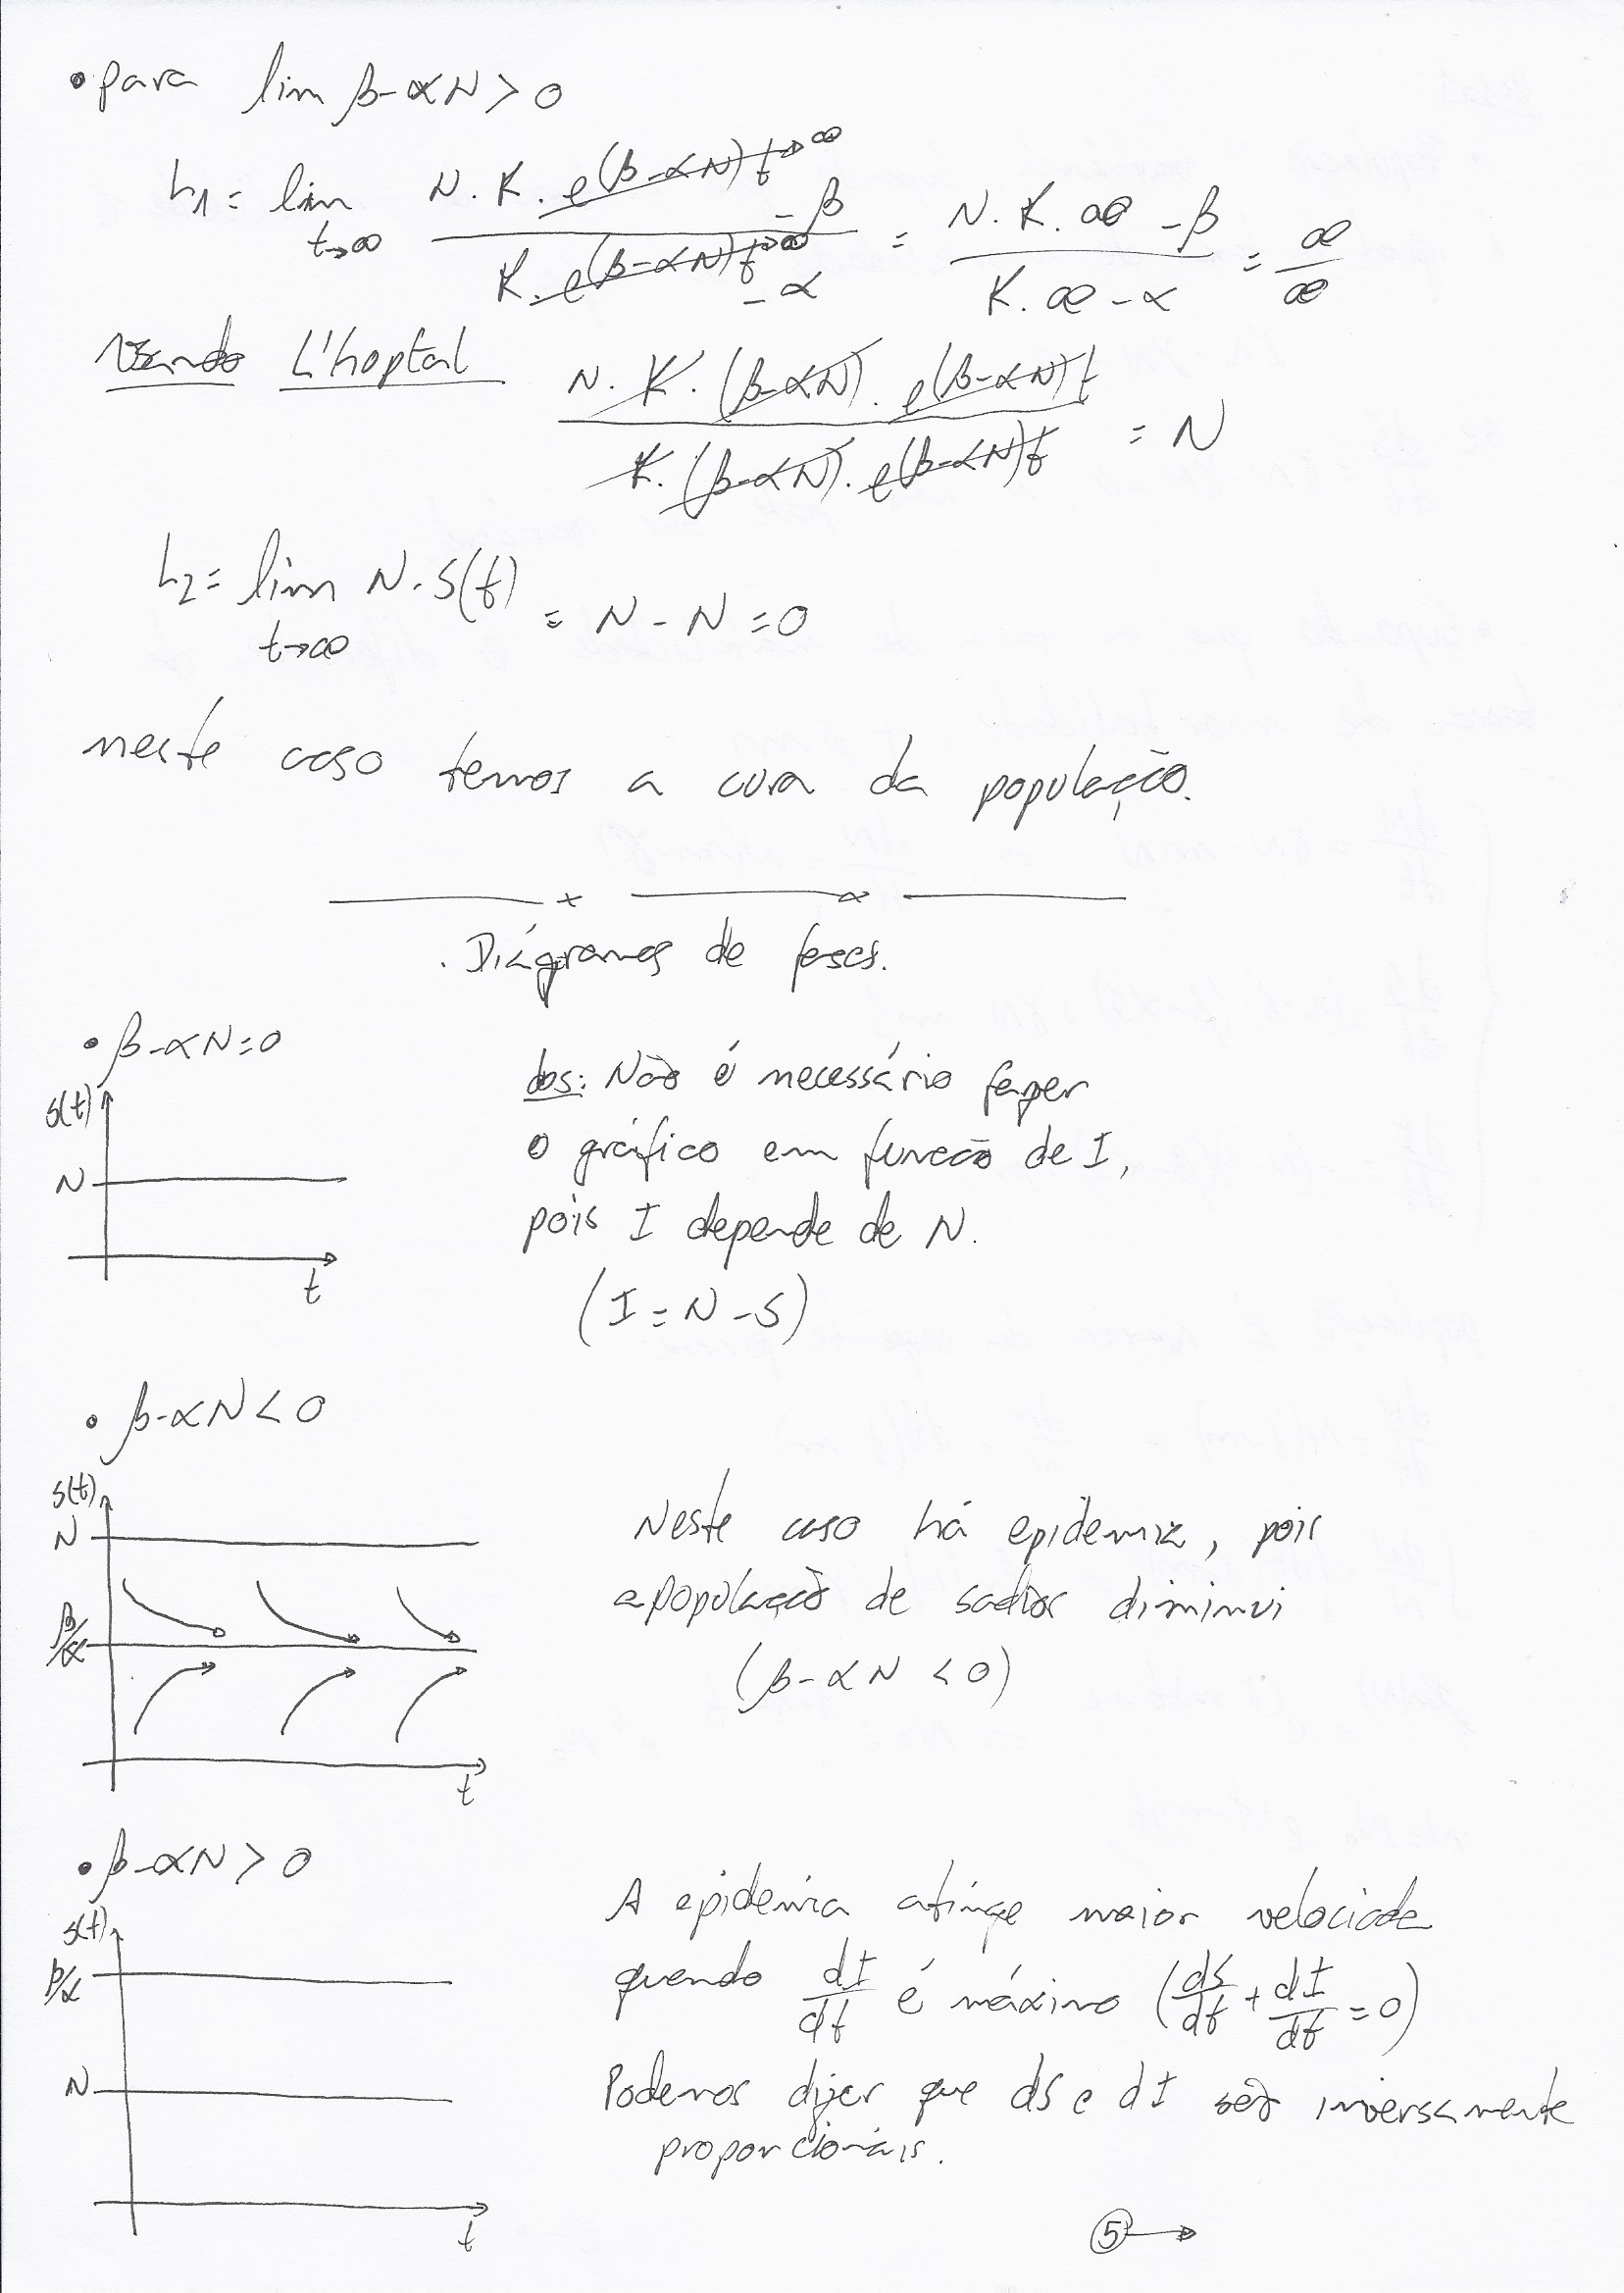 • para lim β-αN > 0
L1 = lim t→∞ N.K.e^(β-αN)t→∞ - β / K.e^(β-αN)t→∞ - α = N.K.∞ - β / K.∞ - α = ∞/∞
Usando L'hoptal N.K.(β-αN).e^(β-αN)t / K.(β-αN).e^(β-αN)t = N
L2 = lim t→∞ N-S(t) = N - N = 0
neste caso temos a cura da população.
. Diagramas de fases.
• β-αN=0
S(t)
N
t
obs: Não é necessário fazer
o gráfico em função de I,
pois I depende de N.
(I = N - S)
• β-αN < 0
S(t)
N
β/α
t
Neste caso há epidemia, pois
a população de sadios diminui
(β-αN < 0)
• β-αN > 0
S(t)
β/α
N
t
A epidemia atinge maior velocidade
quando dI/dt é máximo (dS/dt + dI/dt = 0)
Podemos dizer que dS e dI são inversamente
proporcionais.
5 →